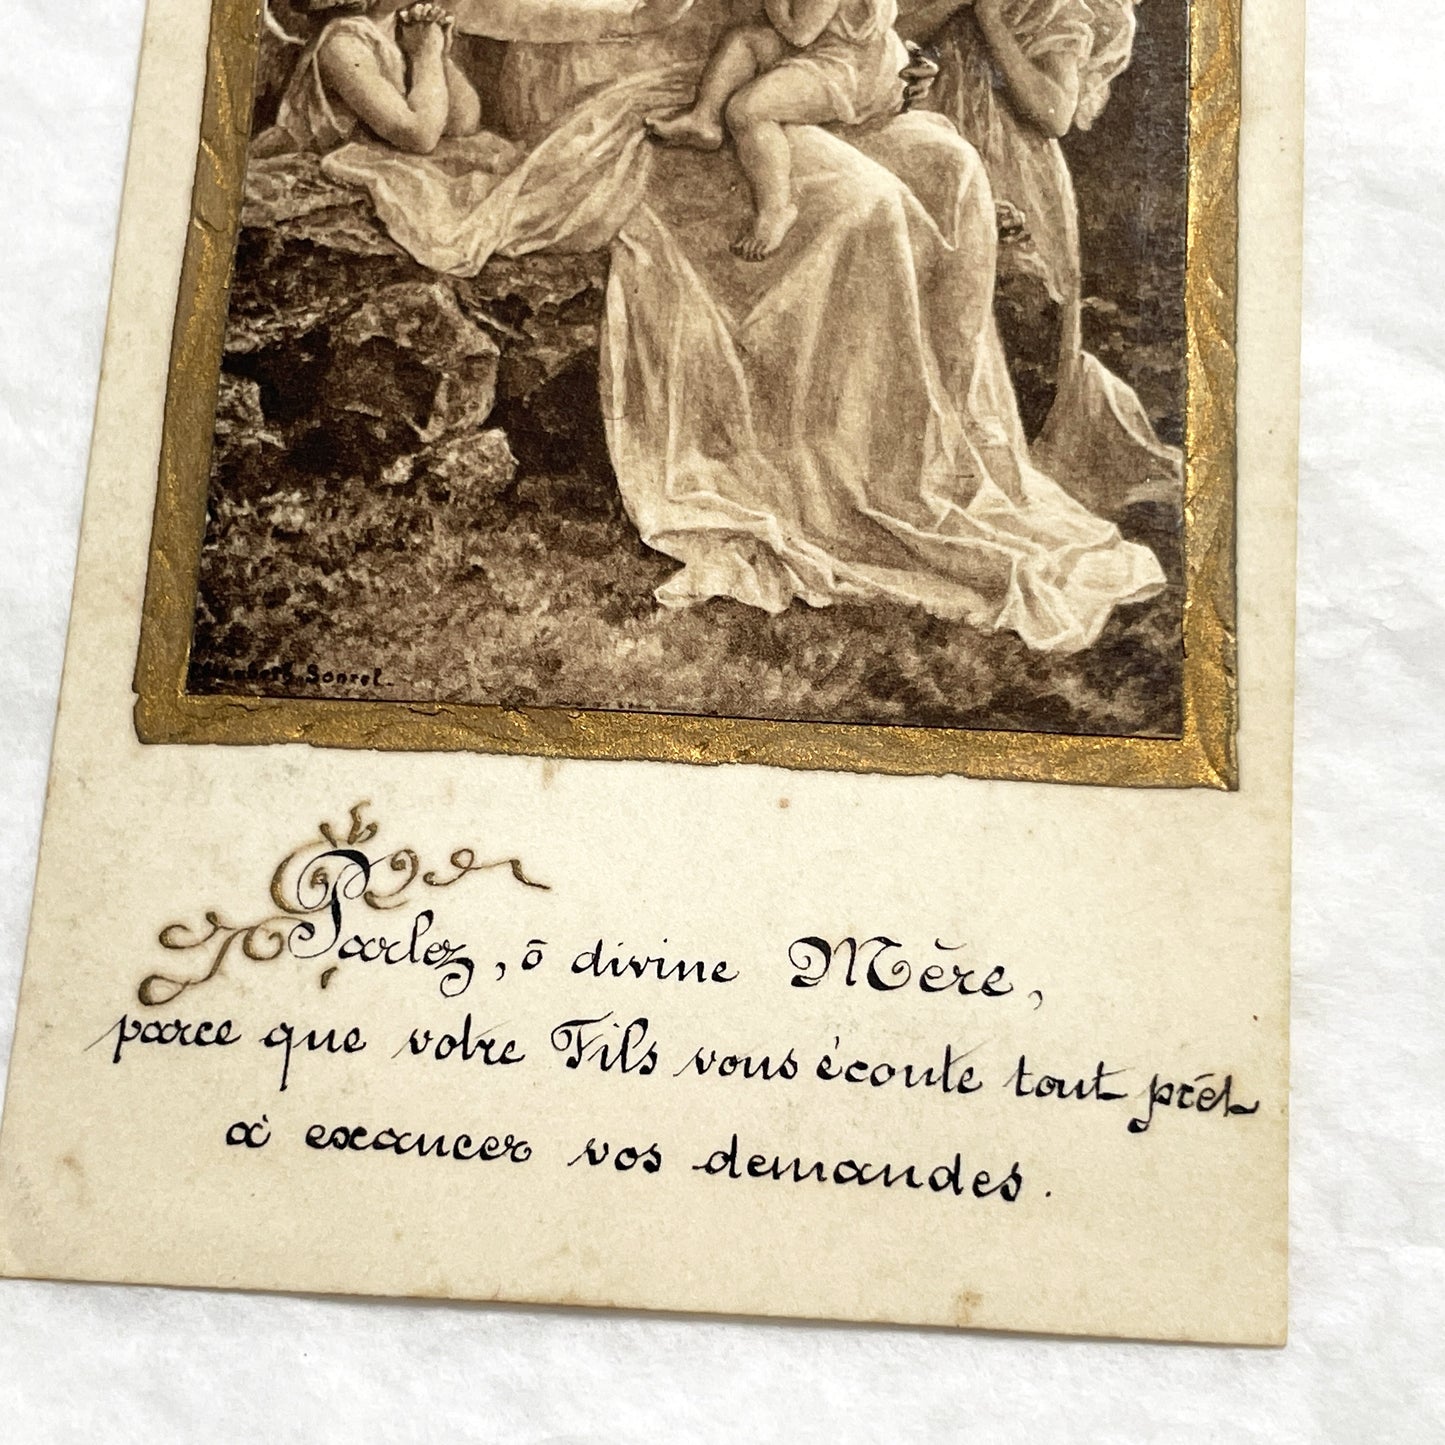 Sonrel.
Parlez, ô divine Mère,
parce que votre Fils vous écoute tout prêt
à exaucer vos demandes.